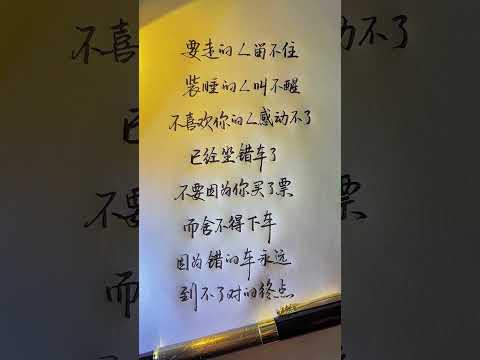 要走的人留不住
装睡的人叫不醒
不喜欢你的人感动不了
已经坐错车了
不要因为你买了票
而舍不得下车
因为错的车永远
到不了对的终点